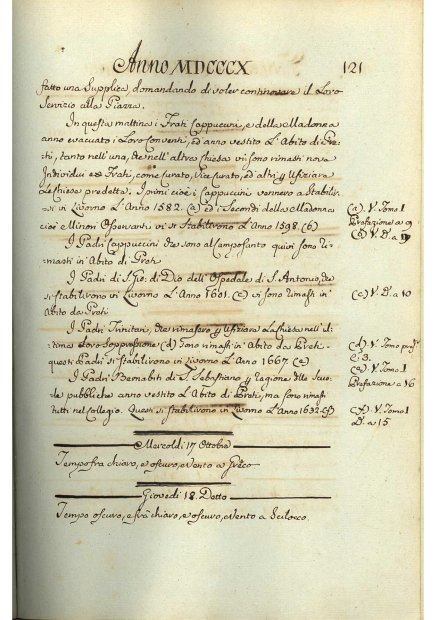 Anno MDCCCX 121
fatto una Supplica, domandando di voler continovare il Loro
Servizio alla Piazza.
In questa mattina i Frati Cappuccini, e della Madonna
anno evacuato i Loro Conventi, ed anno vestito L'Abito di Pre-
ti, tanto nell'una, che nell'altra Chiesa vi sono rimasti nova
Individui ex Frati, come Curato, Vice Curato, ed altri p Ufiziare
Le Chiese predette. I primi cioè i Cappuccini vennero a Stabilir-
si in Livorno L'Anno 1582. (a) ed i Secondi della Madonna (a) V. Tomo I
cioè Minori Osservanti vi si Stabilirono L'Anno 1598. (b) Prefazione a 9
I Padri Cappuccini che sono al Camposanto quivi sono ri- (b) V. D. a 9
masti in Abito di Preti
I Padri di S. Gio: di Dio dell'Ospedale di S. Antonio, che
si stabilirono in Livorno L'Anno 1601. (c) vi sono rimasti in (c) V. D. a 10
Abito da Preti
I Padri Trinitari, che rimasero p Ufiziare La Chiesa nell'ul-
tima Loro Soppressione (d) sono rimasti in Abito da Preti (d) V. Tomo
questi Padri si stabilirono in Livorno L'An. 1667. (e) 63.
I Padri Bernabiti di S. Sebastiano p ragione delle Scuo- (e) V. Tomo I
le pubbliche anno vestito L'Abito di Preti, ma sono rimasti Prefazione a 16
tutti nel Collegio. Questi si stabilirono in Livorno L'Anno 1632. (f) (f) V. Tomo I
D. a 15
Mercoldi 17 Ottobre
Tempo fra chiaro, e oscuro, e vento a Greco
Giovedi 18. Detto
Tempo oscuro, e frà chiaro, e oscuro, e vento a Scilocco.